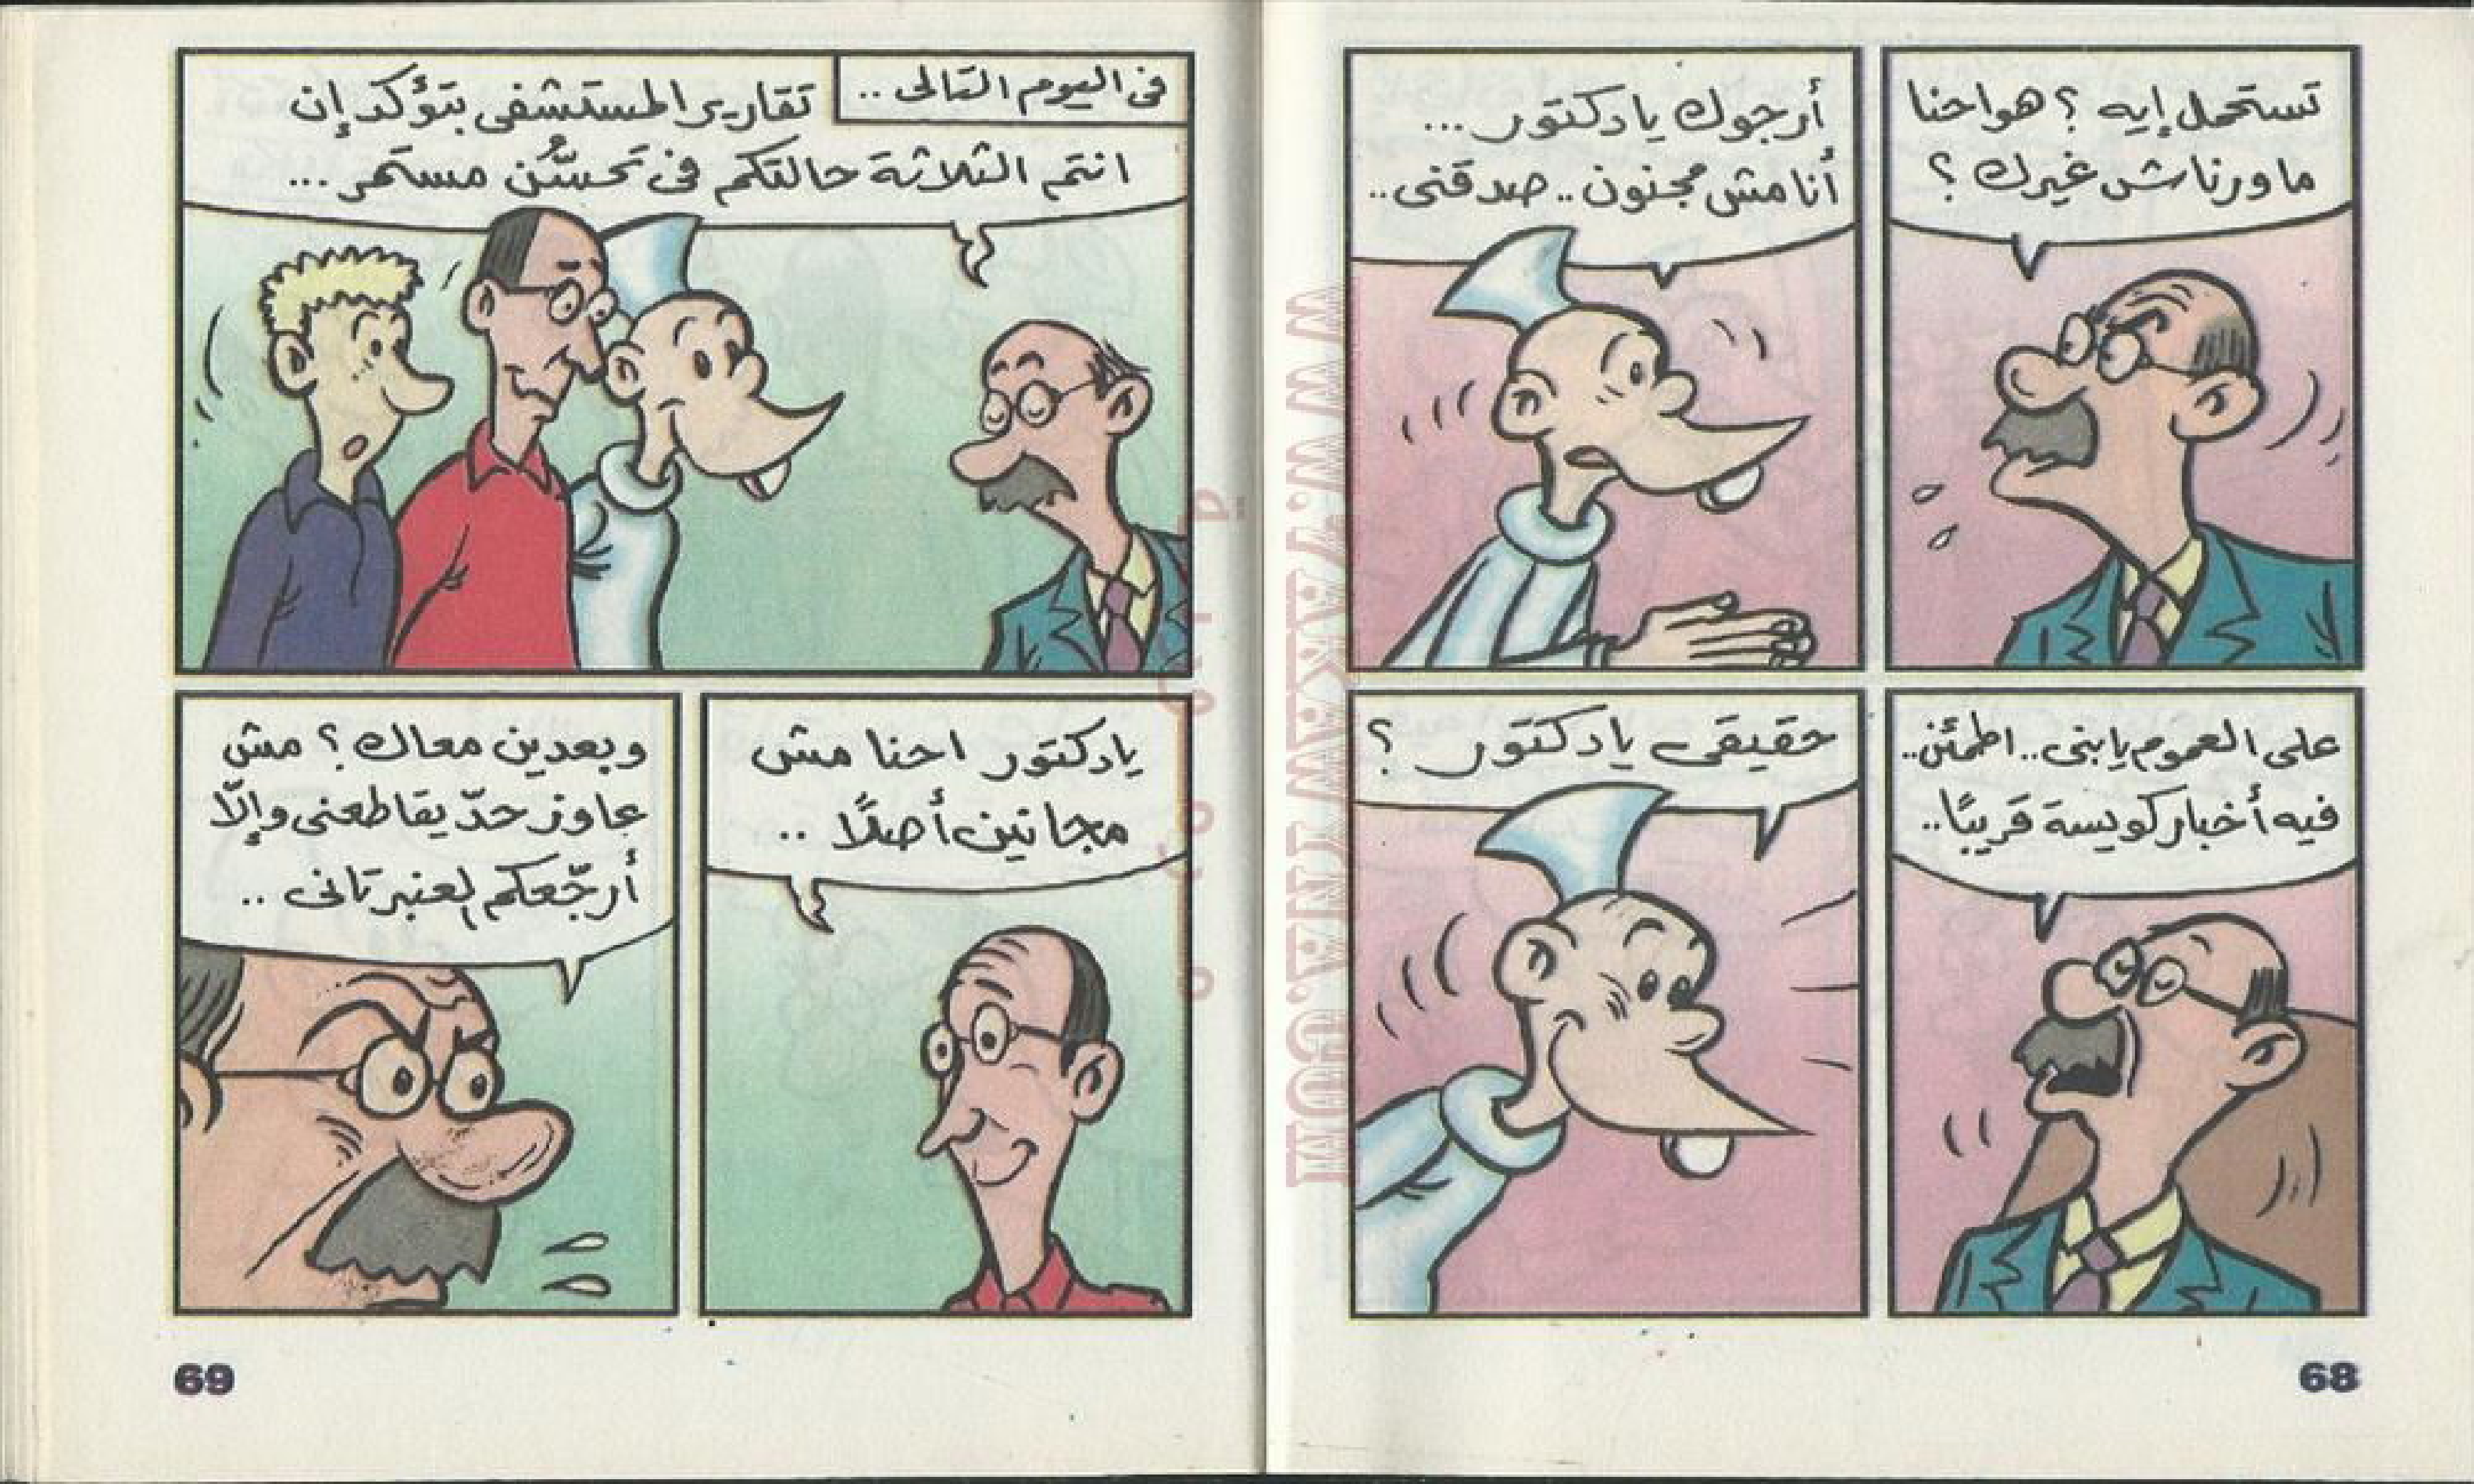 تستحمل إيه ؟ هو احنا
ما ورناش غيرك ؟
أرجوك يا دكتور ...
أنا مش مجنون .. صدقنى ..
على العموم يا بنى .. اطمئن ..
فيه أخبار كويسة قريبًا ..
حقيقى يا دكتور ؟
68
فى اليوم التالى ..
تقارير المستشفى بتؤكد إن
انتم الثلاثة حالتكم فى تحسُّن مستمر ...
يا دكتور احنا مش
مجانين أصلًا ..
وبعدين معاك ؟ مش
عاوز حدّ يقاطعنى وإلّا
أرجّعكم لعنبر تانى ..
69